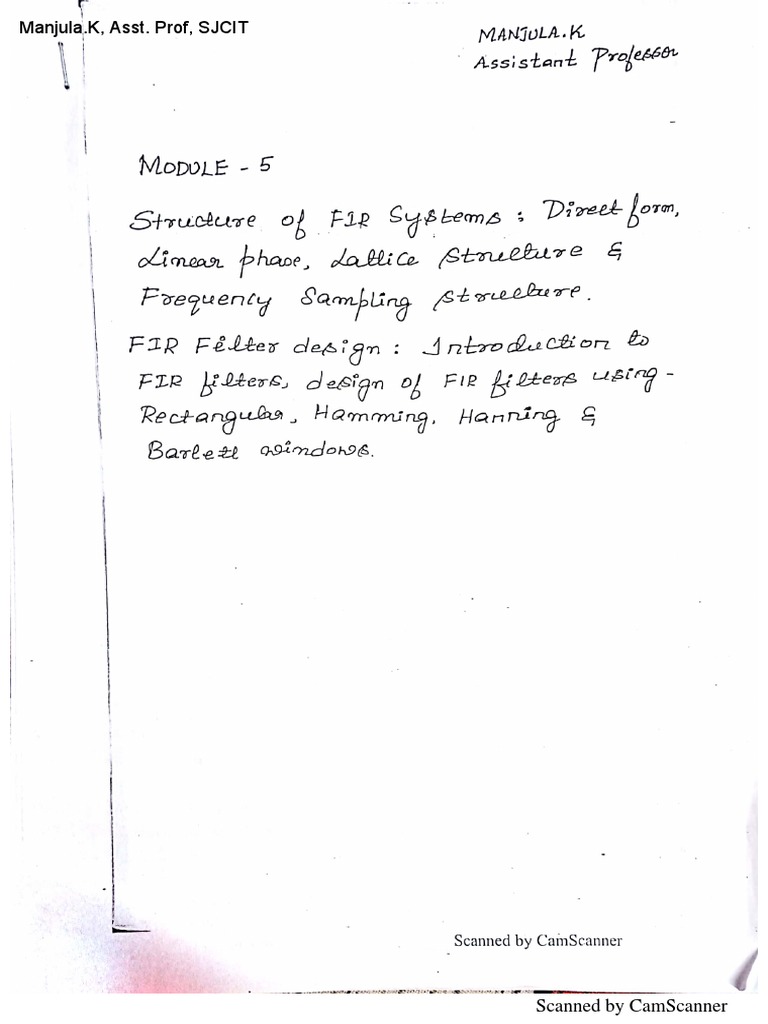 Manjula.K, Asst. Prof, SJCIT
MANJULA.K
Assistant Professor
MODULE - 5
Structure of FIR Systems : Direct form,
Linear phase, Lattice structure &
Frequency Sampling structure.
FIR Filter design : Introduction to
FIR filters, design of FIR filters using -
Rectangular, Hamming, Hanning &
Barlett windows.
Scanned by CamScanner
Scanned by CamScanner